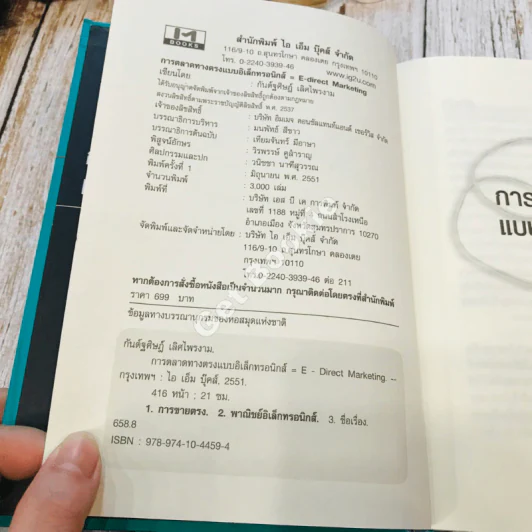 IM
BOOKS
สำนักพิมพ์ ไอ เอ็ม บุ๊คส์ จำกัด
116/9-10 ถ.สุนทรโกษา คลองเตย กรุงเทพฯ 10110
โทร. 0-2240-3939-46 www.ig2u.com
การตลาดทางตรงแบบอิเล็กทรอนิกส์ = E-direct Marketing
เขียนโดย : กันต์ฐศิษฎ์ เลิศไพรงาม
ได้รับอนุญาตจัดพิมพ์จากเจ้าของลิขสิทธิ์ถูกต้องตามกฎหมาย
สงวนลิขสิทธิ์ตามพระราชบัญญัติลิขสิทธิ์ พ.ศ. 2537
เจ้าของลิขสิทธิ์ : บริษัท อิมเมจ คอนซัลแทนท์แอนด์ เซอร์วิส จำกัด
บรรณาธิการบริหาร : มนพัทธ์ สีขาว
บรรณาธิการต้นฉบับ : เทียมจันทร์ มีอาษา
พิสูจน์อักษร : วีรพรรษ์ คูสำราญ
ศิลปกรรมและปก : วนิชชา นาทีสุวรรณ
พิมพ์ครั้งที่ 1 : มิถุนายน พ.ศ. 2551
จำนวนพิมพ์ : 3,000 เล่ม
พิมพ์ที่ : บริษัท เอส บี เค การพิมพ์ จำกัด
เลขที่ 1188 หมู่ที่ ถนนสำโรงเหนือ
อำเภอเมือง จังหวัดสมุทรปราการ 10270
จัดพิมพ์และจัดจำหน่ายโดย : บริษัท ไอ เอ็ม บุ๊คส์ จำกัด
116/9-10 ถ.สุนทรโกษา คลองเตย
กรุงเทพฯ 10110
โทร.0-2240-3939-46 ต่อ 211
หากต้องการสั่งซื้อหนังสือเป็นจำนวนมาก กรุณาติดต่อโดยตรงที่สำนักพิมพ์
ราคา 699 บาท
ข้อมูลทางบรรณานุกรมของหอสมุดแห่งชาติ
กันต์ฐศิษฎ์ เลิศไพรงาม.
การตลาดทางตรงแบบอิเล็กทรอนิกส์ = E - Direct Marketing. --
กรุงเทพฯ : ไอ เอ็ม บุ๊คส์, 2551.
416 หน้า ; 21 ซม.
1. การขายตรง. 2. พาณิชย์อิเล็กทรอนิกส์. 3. ชื่อเรื่อง.
658.8
ISBN : 978-974-10-4459-4
การ
แบบ